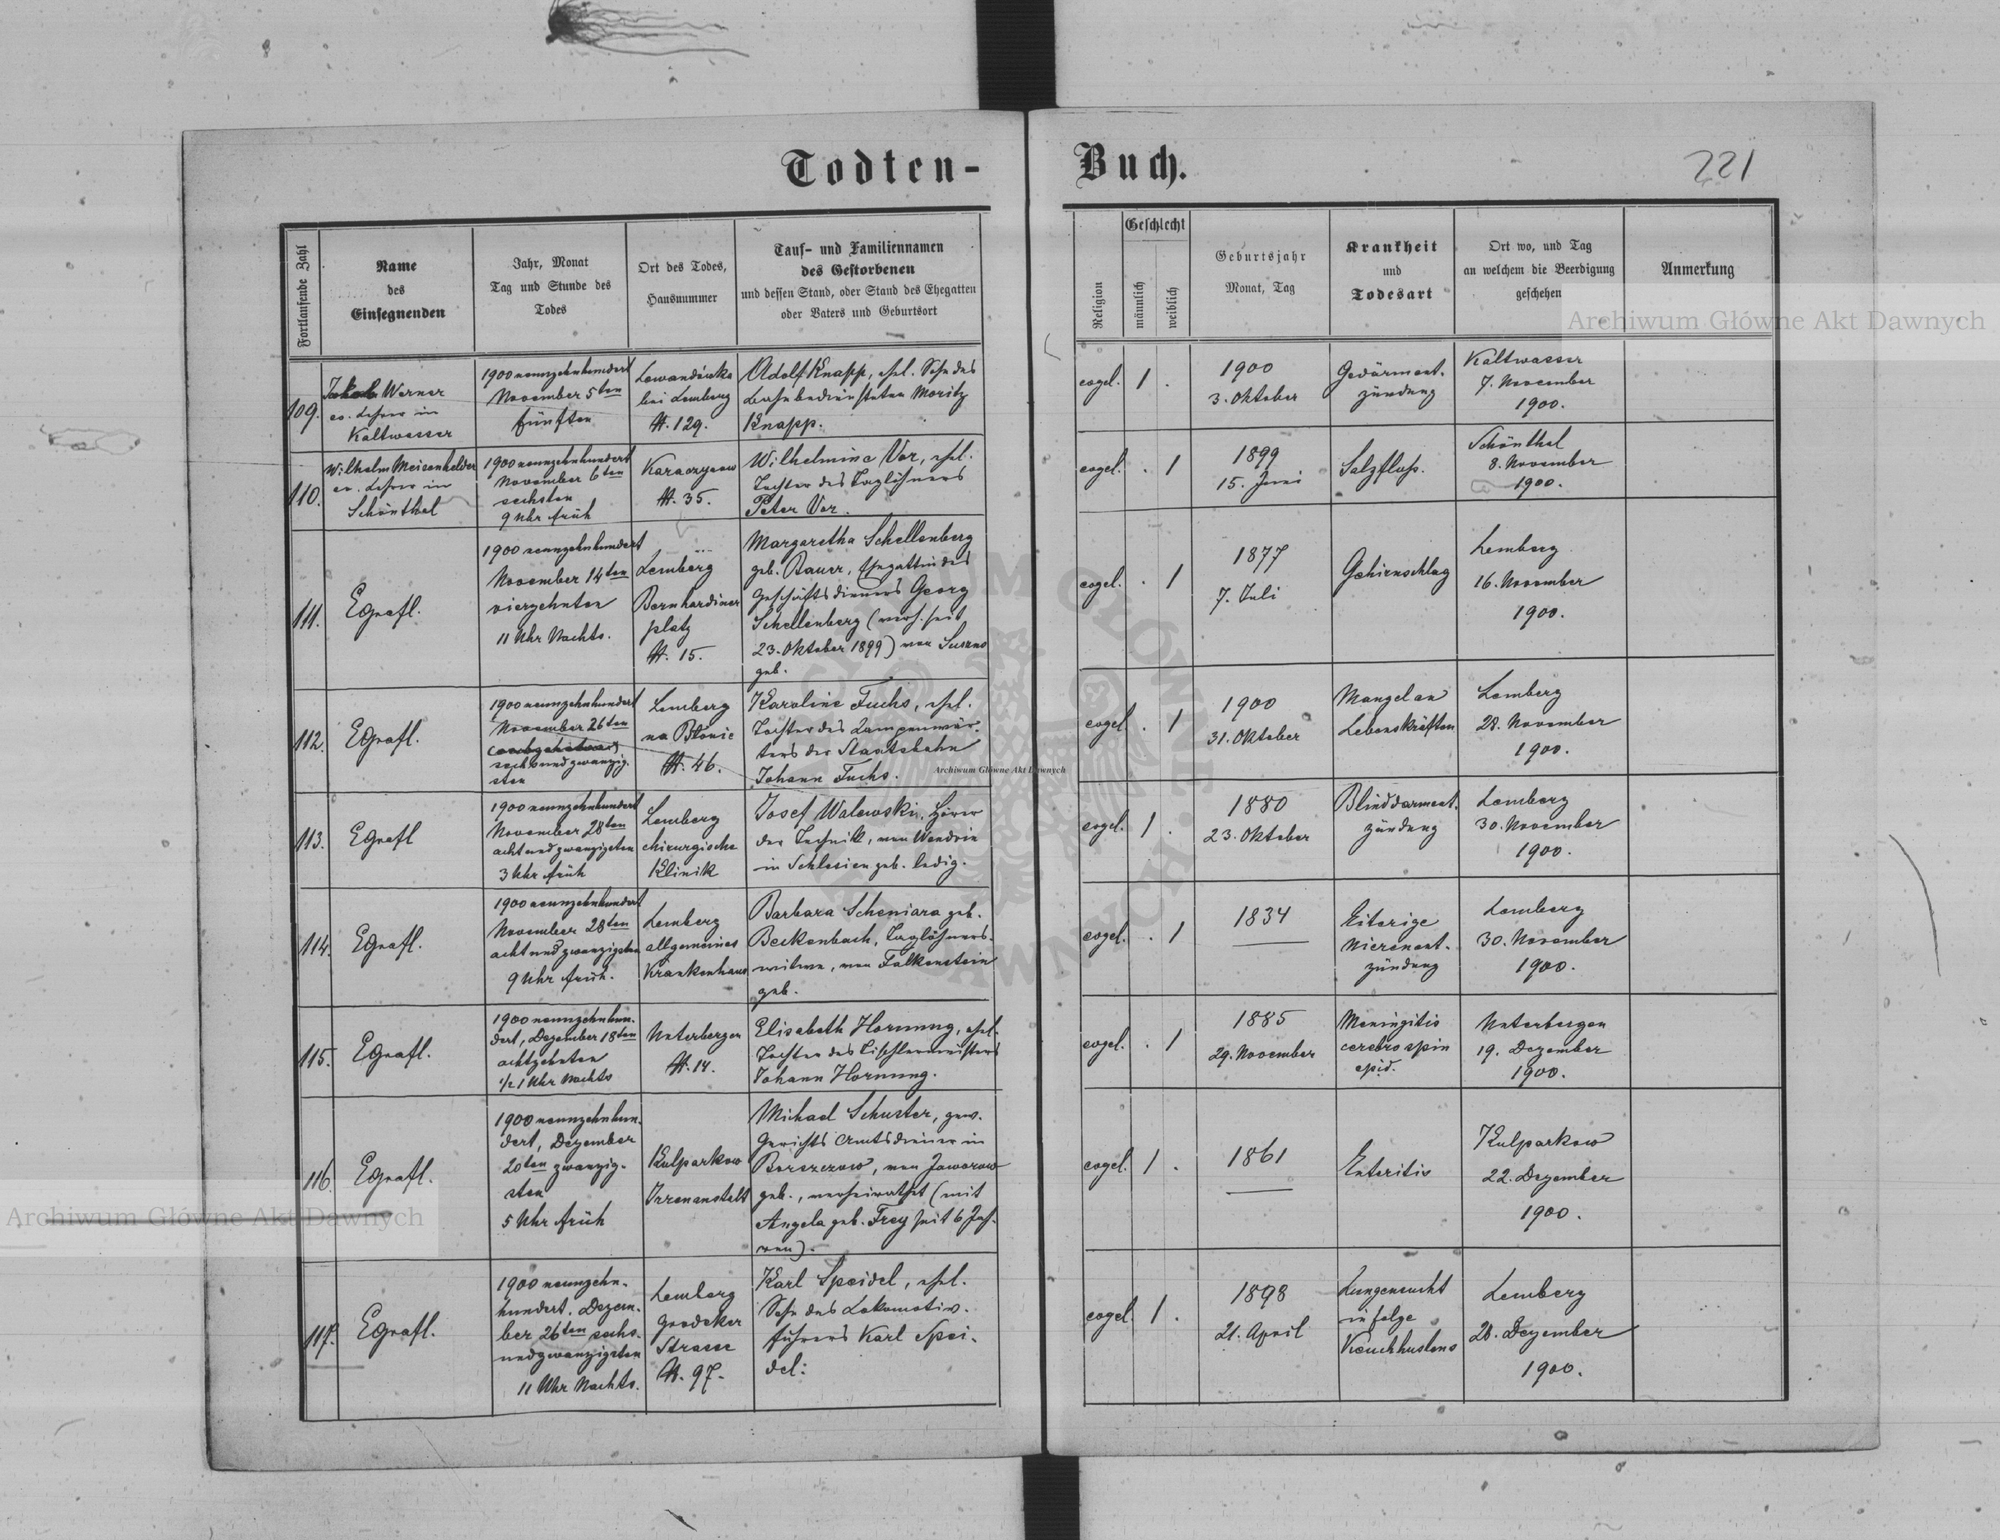 Todten-Buch.
221
Fortlaufende Zahl
Name
des
Einsegnenden
Jahr, Monat
Tag und Stunde des
Todes
Ort des Todes,
Hausnummer
Tauf- und Familiennamen
des Gestorbenen
und dessen Stand, oder Stand des Ehegatten
oder Vaters und Geburtsort
Religion
Geschlecht
männlich
weiblich
Geburtsjahr
Monat, Tag
Krankheit
und
Todesart
Ort wo, und Tag
an welchem die Beerdigung
geschehen
Anmerkung
109.
Jakob Werner
ev. Lehrer in
Kaltwasser
1900 neunzehnhundert
November 5ten
fünften
Lewandówka
bei Lemberg
N. 129.
Adolf Knapp, ehel. Sohn des
Bahnbediensteten Moritz
Knapp.
evgel.
1
.
1900
3. Oktober
Gedärment-
zündung
Kaltwasser
7. November
1900.
110.
Wilhelm Meisenhelder
ev. Lehrer in
Schönthal
1900 neunzehnhundert
November 6ten
sechsten
9 Uhr früh
Karaczynow
N. 35.
Wilhelmine Vor, ehel.
Tochter des Taglöhners
Peter Vor.
evgel.
.
1
1899
15. Juni
Salzfluß.
Schönthal
8. November
1900.
111.
EGrafl.
1900 neunzehnhundert
November 14ten
vierzehnten
11 Uhr Nachts.
Lemberg
Bernhardiner
platz
N. 15.
Margaretha Schellenberg
geb. Bauer, Ehegattin des
Geschäftsdieners Georg
Schellenberg (verh. seit
23. Oktober 1899) von
geb.
evgel.
.
1
1877
7. Juli
Gehirnschlag
Lemberg
16. November
1900.
112.
EGrafl.
1900 neunzehnhundert
November 26ten
sechsundzwanzig-
sten
Lemberg
na Błonie
N. 46.
Karoline Fuchs, ehel.
Tochter des Lampenwär-
ters der Staatsbahn
Johann Fuchs.
evgel.
.
1
1900
31. Oktober
Mangel an
Lebenskräften
Lemberg
28. November
1900.
113.
EGrafl
1900 neunzehnhundert
November 28ten
achtundzwanzigsten
3 Uhr früh
Lemberg
chirurgische
Klinik
Josef Walewski, Hörer
der Technik, von Wendrin
in Schlesien geb. ledig.
evgel.
1
.
1880
23. Oktober
Blinddarment-
zündung
Lemberg
30. November
1900.
114.
EGrafl.
1900 neunzehnhundert
November 28ten
achtundzwanzigsten
9 Uhr früh.
Lemberg
allgemeines
Krankenhaus
Barbara Scheniara geb.
Beckenbach, Taglöhners-
witwe, von Falkenstein
geb.
evgel.
.
1
1834
Eiterige
Nierenent-
zündung
Lemberg
30. November
1900.
115.
EGrafl.
1900 neunzehnhun-
dert, Dezember 18ten
achtzehnten
1/2 1 Uhr Nachts
Unterbergen
N. 14.
Elisabeth Hornung, ehel.
Tochter des Tischlermeisters
Johann Hornung.
evgel.
.
1
1885
29. November
Meningitis
cerebrospin
epid.
Unterbergen
19. Dezember
1900.
116.
EGrafl.
1900 neunzehnhun-
dert, Dezember
20ten zwanzig-
sten
5 Uhr früh
Kulparkow
Irrenanstalt
Michael Schuster, gew.
Gerichts Amtsdiener in
Borszczow, von Jaworow
geb., verheirathet (mit
Angela geb. Frey seit 6 Jah-
ren).
evgel.
1
.
1861
Enteritis
Kulparkow
22. Dezember
1900.
117.
EGrafl.
1900 neunzehn-
hundert, Dezem-
ber 26ten sechs-
undzwanzigsten
11 Uhr Nachts.
Lemberg
Grodeker
Strasse
N. 97.
Karl Speidel, ehel.
Sohn des Lokomotiv-
führers Karl Spei-
del.
evgel.
1
.
1898
21. April
Lungensucht
in folge
Keuchhustens
Lemberg
28. Dezember
1900.
Archiwum Główne Akt Dawnych
Archiwum Główne Akt Dawnych
Archiwum Główne Akt Dawnych